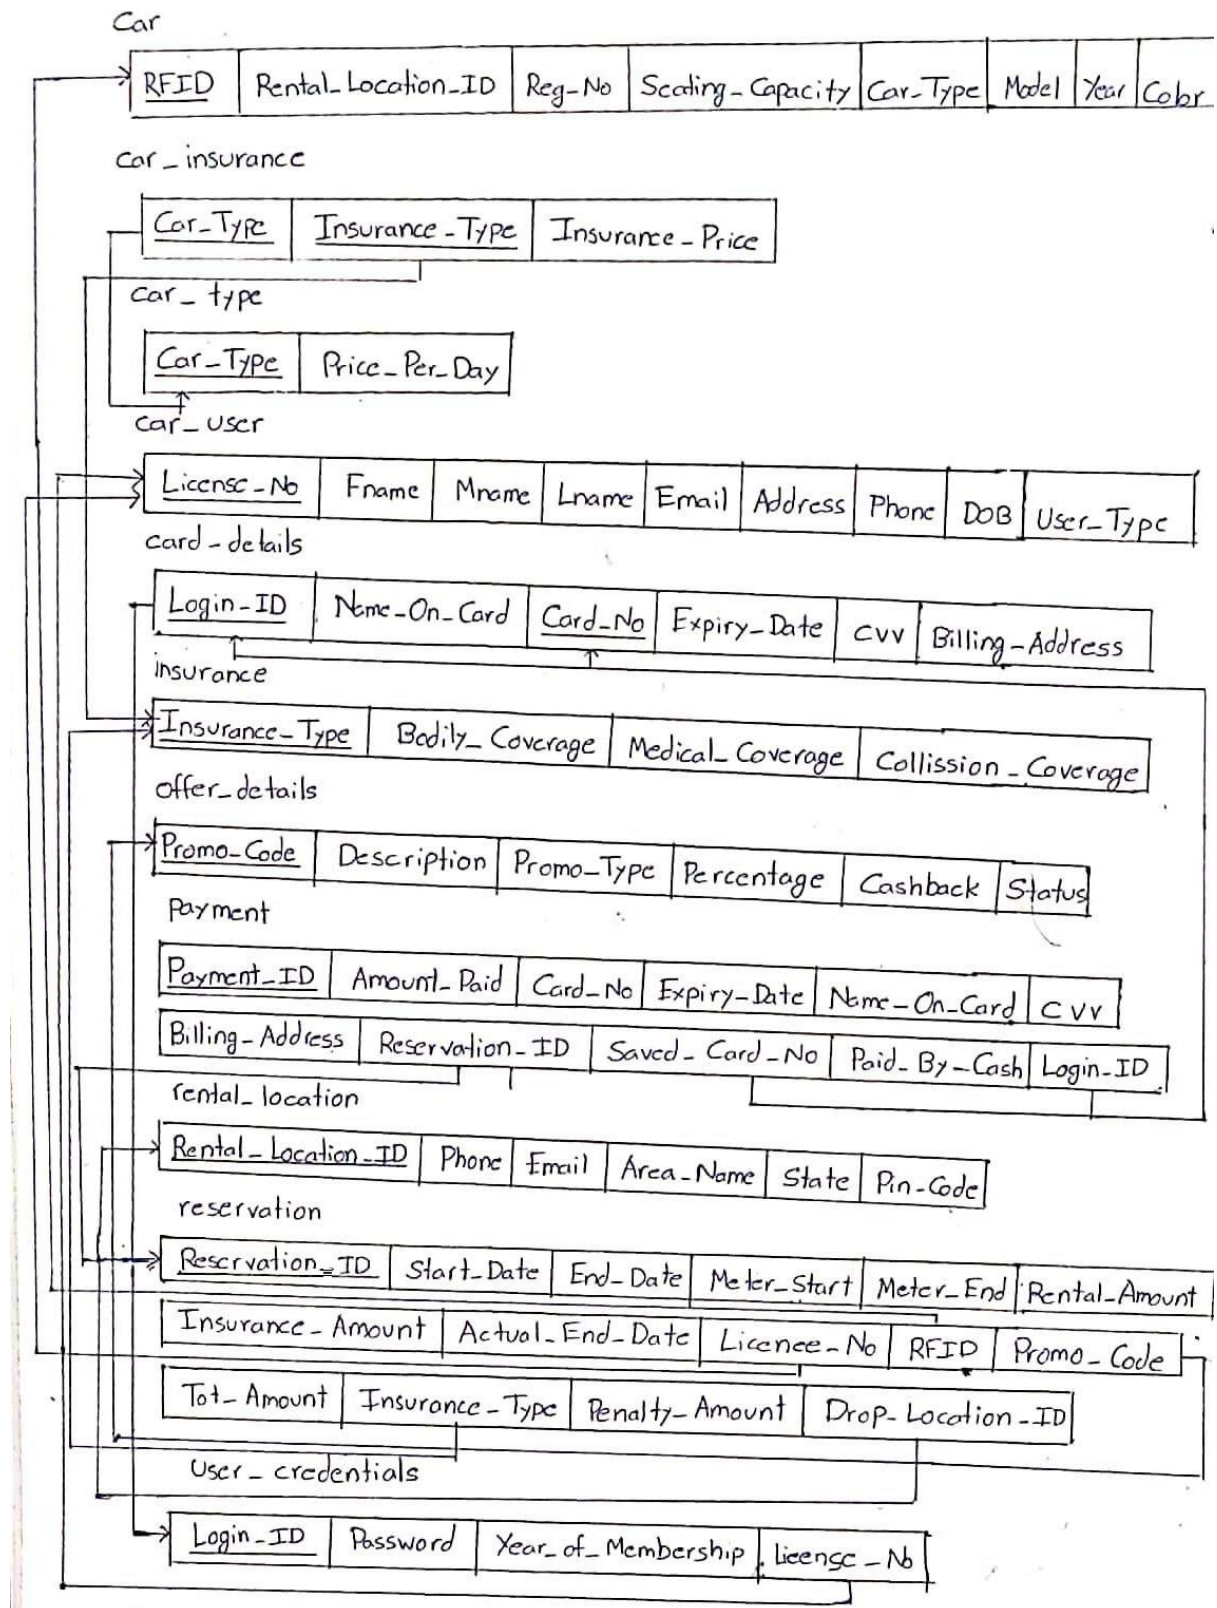 Car
RFID Rental_Location_ID Reg_No Seating_Capacity Car_Type Model Year Color
car_insurance
Car_Type Insurance_Type Insurance_Price
car_type
Car_Type Price_Per_Day
car_user
License_No Fname Mname Lname Email Address Phone DOB User_Type
card_details
Login_ID Name_On_Card Card_No Expiry_Date CVV Billing_Address
insurance
Insurance_Type Bodily_Coverage Medical_Coverage Collission_Coverage
offer_details
Promo_Code Description Promo_Type Percentage Cashback Status
Payment
Payment_ID Amount_Paid Card_No Expiry_Date Name_On_Card CVV
Billing_Address Reservation_ID Saved_Card_No Paid_By_Cash Login_ID
rental_location
Rental_Location_ID Phone Email Area_Name State Pin_Code
reservation
Reservation_ID Start_Date End_Date Meter_Start Meter_End Rental_Amount
Insurance_Amount Actual_End_Date Licenee_No RFID Promo_Code
Tot_Amount Insurance_Type Penalty_Amount Drop_Location_ID
User_credentials
Login_ID Password Year_of_Membership License_No